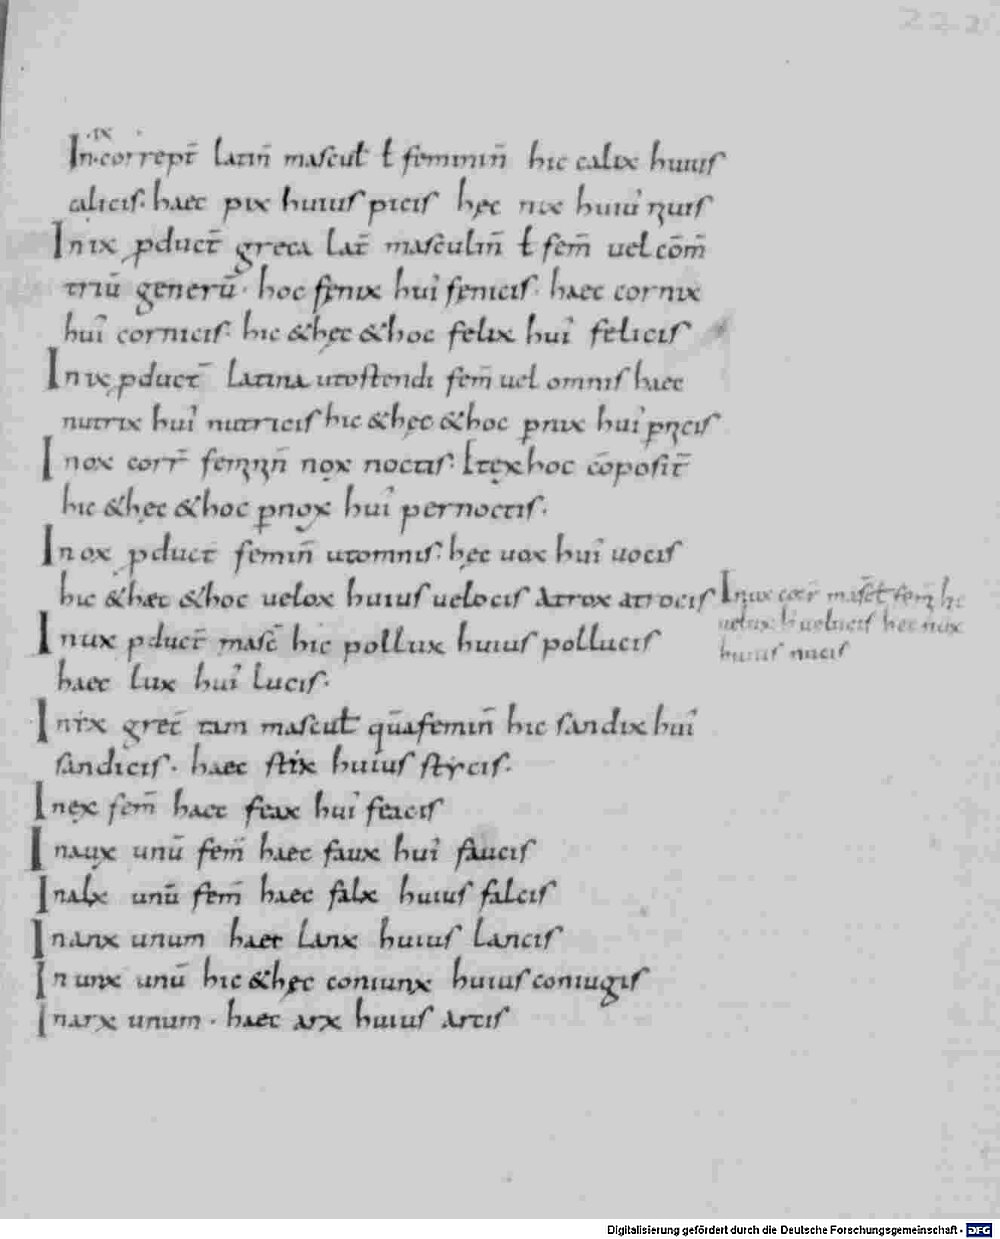 222
.ix.
In·corrept̄ latin̄ mascul ł feminin̄ hic calix huius
calicis. haec pix huius picis hęc nix huiu' niuis
In ix ꝓduct̄ greca lat̄ masculin̄ ł fem̄ uel cōm̄
triū generū. hoc fenix hui' fenicis. haec cornix
hui' cornicis. hic &hęc &hoc felix hui' felicis
In ix ꝓduct̄ latina ut ostendi fem̄ uel omnis haec
nutrix hui' nutricis hic &hęc &hoc ꝑnix hui' ꝑnicis
In ox corr̄ feminin̄ nox noctis. & ex hoc cōposit̄
hic &hęc &hoc ꝑnox hui' pernoctis.
In ox ꝓduct̄ femin̄ ut omnis. hęc uox hui' uocis
hic &hæc &hoc uelox huius uelocis atrox atrocis
In ux corr̄ masc̄ ł fem̄ hic
uolux h' uolucis hec nux
huius nucis
In ux ꝓduct̄ masc̄ hic pollux huius pollucis
haec lux hui' lucis.
In ix grec̄ tam mascul quā femin̄ hic sandix hui'
sandicis. haec stix huius stycis.
In ęx fem̄ haec feax hui' feacis
In aux unū fem̄ haec faux hui' faucis
In alx unū fem̄ haec falx huius falcis
In anx unum haec lanx huius lancis
In unx unū hic &hęc coniunx huius coniugis
In arx unum. haec arx huius arcis
Digitalisierung gefördert durch die Deutsche Forschungsgemeinschaft - DFG